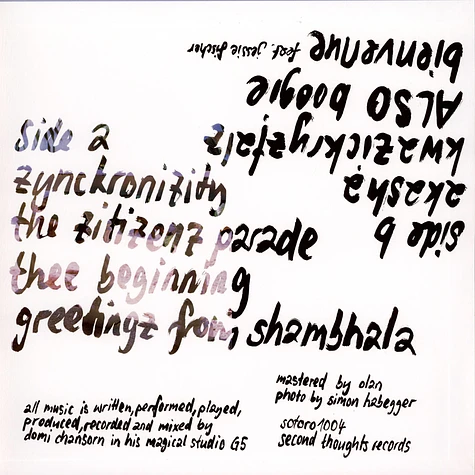 side a
zynckronizity
the zitizenz parade
thee beginning
greetingz from shambhala
side b
akasha
kwazickryzfalz
ALSO boogie
bienvenue feat. jessie fischer
all music is written, performed, played,
produced, recorded and mixed by
domi chansorn in his magical studio G5
mastered by olan
photo by simon habegger
sotoro1004
second thoughts records